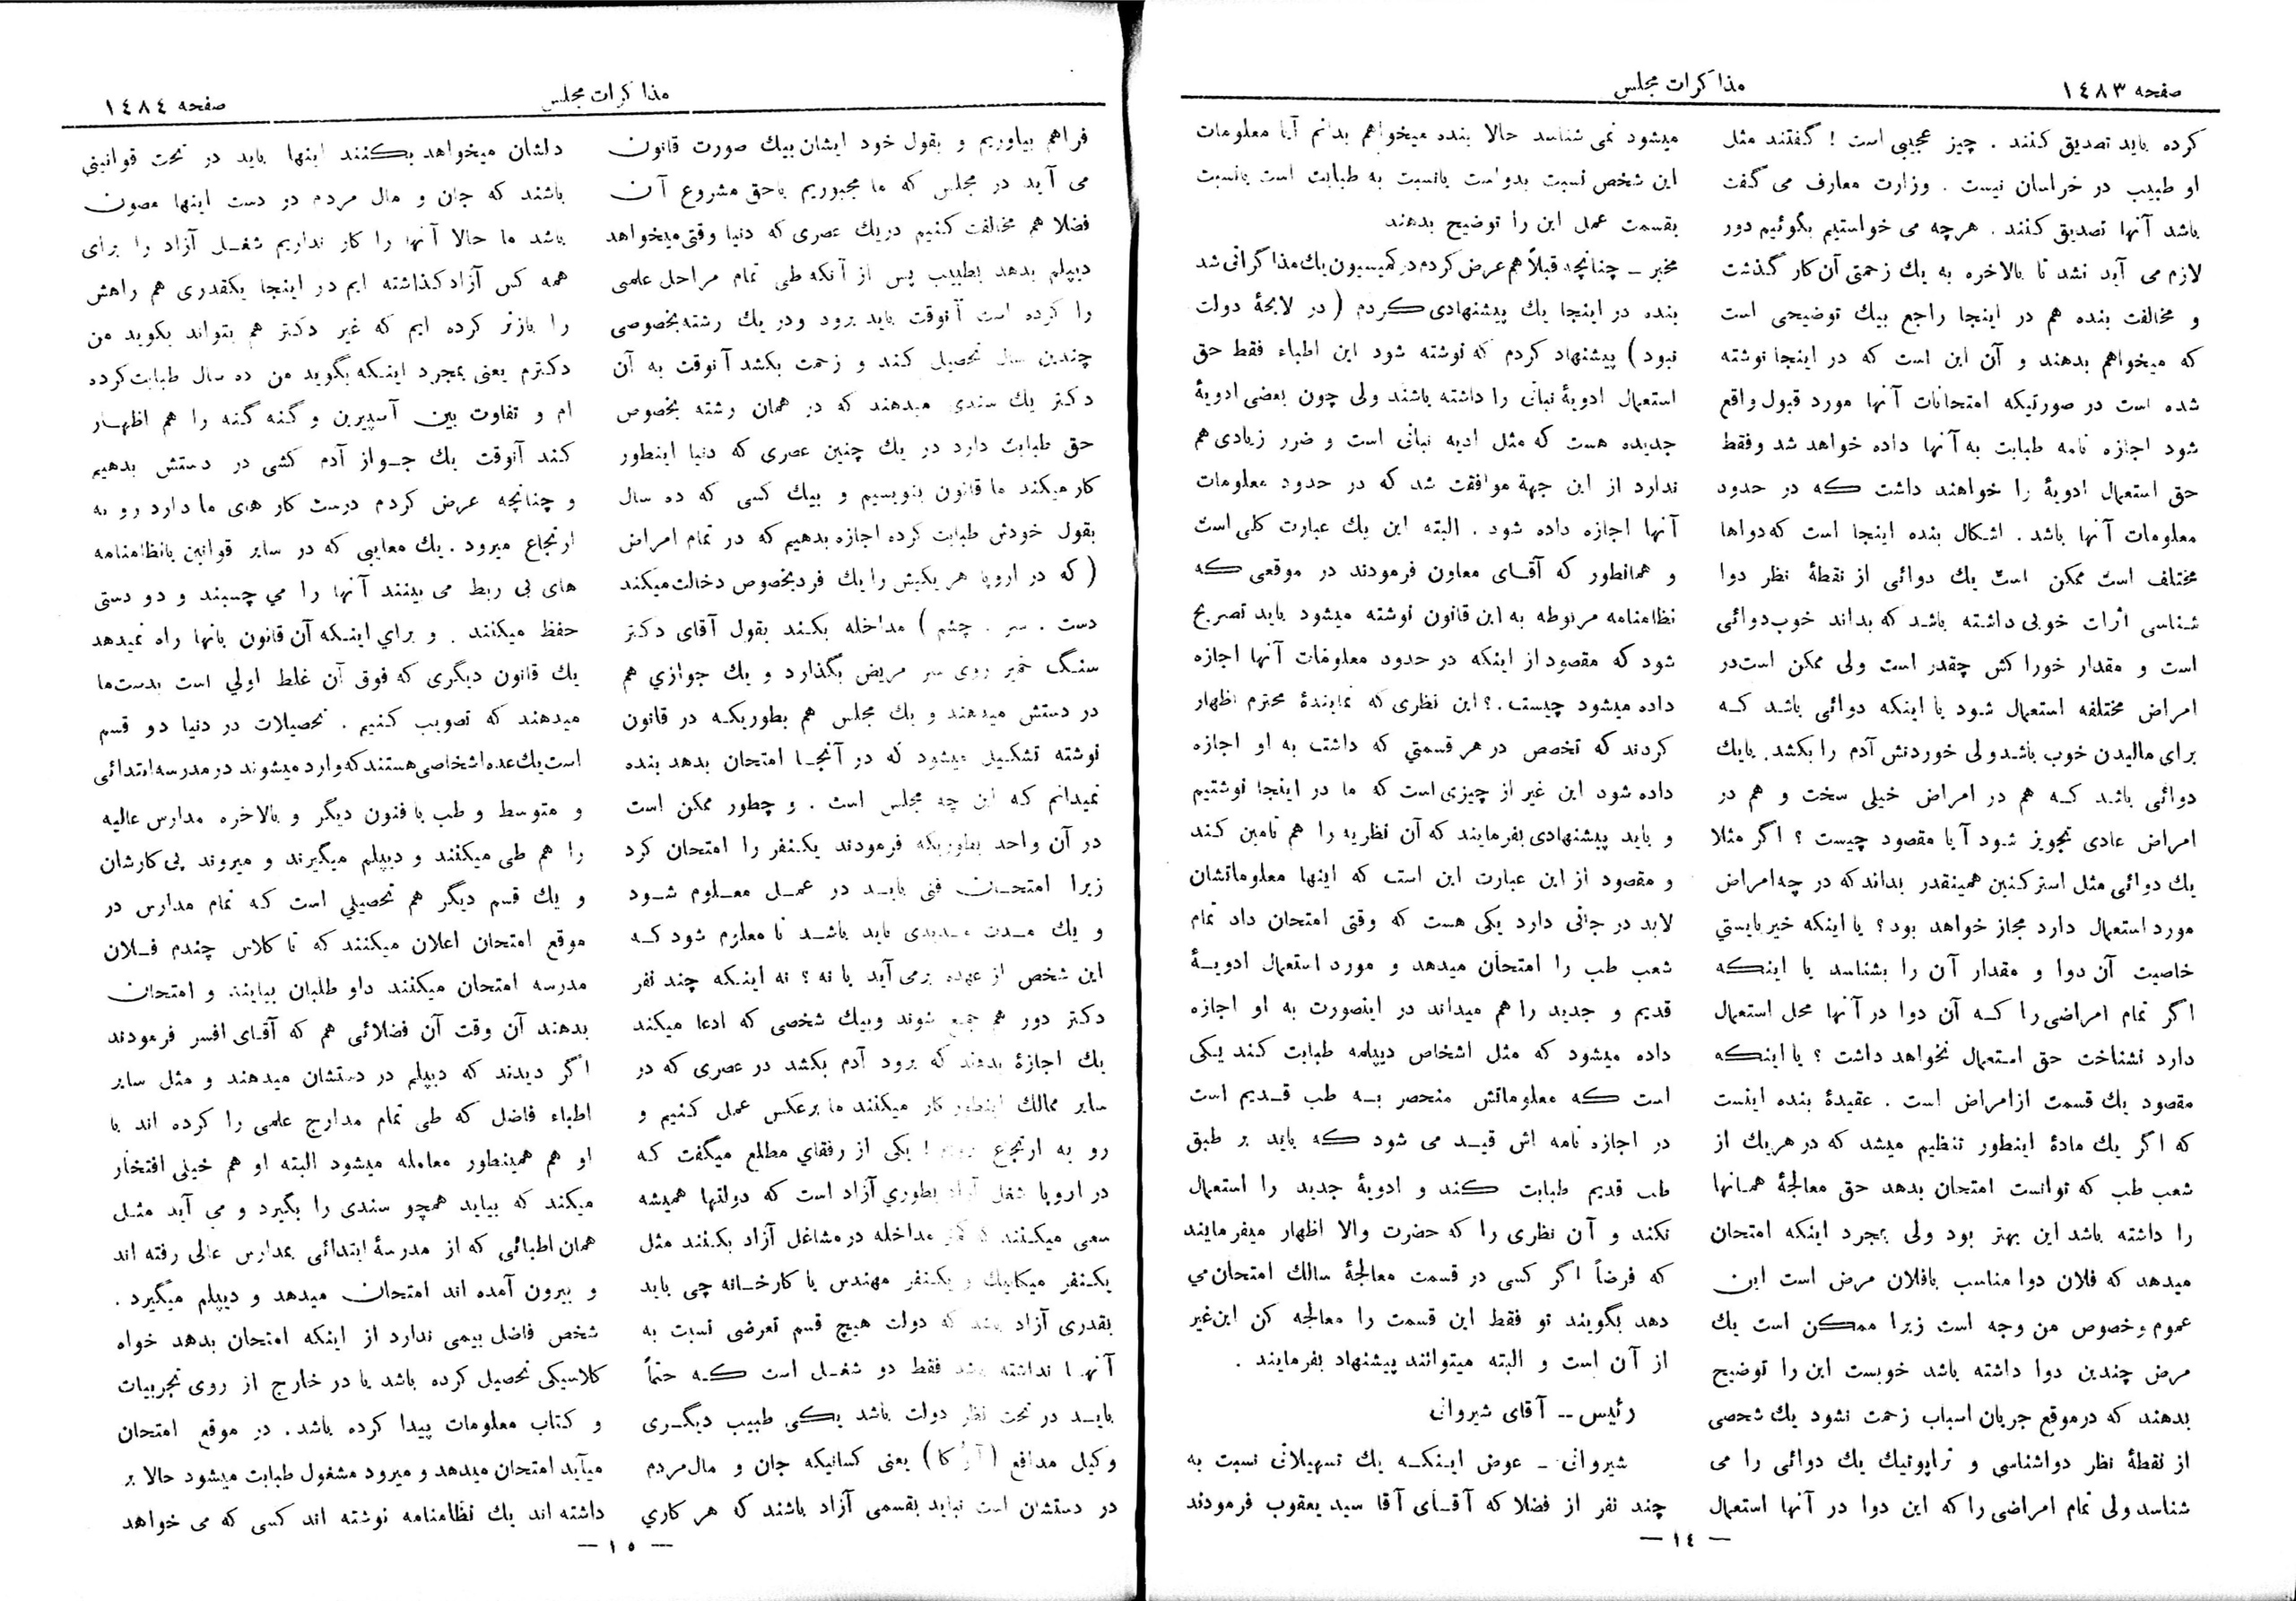 صفحه ١٤٨٣
مذاکرات مجلس
کرده باید تصدیق کنند . چیز عجیبی است ! گفتند مثل
او طبیب در خراسان نیست . وزارت معارف می گفت
باشد آنها تصدیق کنند . هرچه می خواستیم بگوئیم دور
لازم می آید نشد تا بالاخره به یك زحمتی آن کار گذشت
و مخالفت بنده هم در اینجا راجع بیك توضیحی است
که میخواهم بدهند و آن این است که در اینجا نوشته
شده است در صورتیکه امتحانات آنها مورد قبول واقع
شود اجازه نامه طبابت به آنها داده خواهد شد وفقط
حق استعمال ادویهٔ را خواهند داشت که در حدود
معلومات آنها باشد . اشکال بنده اینجا است که دواها
مختلف است ممکن است یك دوائی از نقطهٔ نظر دوا
شناسی اثرات خوبی داشته باشد که بداند خوب دوائی
است و مقدار خوراکش چقدر است ولی ممکن است در
امراض مختلفه استعمال شود یا اینکه دوائی باشد که
برای مالیدن خوب باشد ولی خوردنش آدم را بکشد . یا یك
دوائی باشد که هم در امراض خیلی سخت و هم در
امراض عادی تجویز شود آیا مقصود چیست ؟ اگر مثلا
یك دوائی مثل استرکنین همینقدر بداند که در چه امراض
مورد استعمال دارد مجاز خواهد بود ؟ یا اینکه خیر بایستي
خاصیت آن دوا و مقدار آن را بشناسد یا اینکه
اگر تمام امراضی را که آن دوا در آنها محل استعمال
دارد نشناخت حق استعمال نخواهد داشت ؟ یا اینکه
مقصود یك قسمت از امراض است . عقیدهٔ بنده اینست
که اگر یك مادهٔ اینطور تنظیم میشد که در هریك از
شعب طب که توانست امتحان بدهد حق معالجهٔ همانها
را داشته باشد این بهتر بود ولی بمجرد اینکه امتحان
میدهد که فلان دوا مناسب بافلان مرض است این
عموم وخصوص من وجه است زیرا ممکن است یك
مرض چندین دوا داشته باشد خوبست این را توضیح
بدهند که درموقع جریان اسباب زحمت نشود یك شخصی
از نقطهٔ نظر دواشناسی و تراپوتیك یك دوائی را می
شناسد ولی تمام امراضی را که این دوا در آنها استعمال
میشود نمی شناسد حالا بنده میخواهم بدانم آیا معلومات
این شخص نسبت بدواست یانسبت به طبابت است یانسبت
بقسمت عمل این را توضیح بدهند
مخبر ـ چنانچه قبلاً هم عرض کردم در کمیسیون یك مذاکراتی شد
بنده در اینجا یك پیشنهادی کردم ( در لایحهٔ دولت
نبود ) پیشنهاد کردم که نوشته شود این اطباء فقط حق
استعمال ادویهٔ نباتی را داشته باشند ولی چون بعضی ادویهٔ
جدیده هست که مثل ادیه نباتی است و ضرر زیادی هم
ندارد از این جهة موافقت شد که در حدود معلومات
آنها اجازه داده شود . البته این یك عبارت کلی است
و همانطور که آقای معاون فرمودند در موقعی که
نظامنامه مربوطه به این قانون نوشته میشود باید تصریح
شود که مقصود از اینکه در حدود معلومات آنها اجازه
داده میشود چیست .؟ این نظری که نمایندهٔ محترم اظهار
کردند که تخصص در هر قسمتي که داشت به او اجازه
داده شود این غیر از چیزی است که ما در اینجا نوشتیم
و باید پیشنهادی بفرمایند که آن نظریه را هم تامین کند
و مقصود از این عبارت این است که اینها معلوماتشان
لابد در جائی دارد یکی هست که وقتی امتحان داد تمام
شعب طب را امتحان میدهد و مورد استعمال ادویهٔ
قدیم و جدید را هم میداند در اینصورت به او اجازه
داده میشود که مثل اشخاص دیپلمه طبابت کند یکی
است که معلوماتش منحصر به طب قدیم است
در اجازه نامه اش قید می شود که باید بر طبق
طب قدیم طبابت کند و ادویهٔ جدید را استعمال
نکند و آن نظری را که حضرت والا اظهار میفرمایند
که فرضاً اگر کسی در قسمت معالجهٔ سالك امتحان مي
دهد بگویند تو فقط این قسمت را معالجه کن این غیر
از آن است و البته میتوانند پیشنهاد بفرمایند .
رئیس -- آقای شیروانی
شیروانی ـ عوض اینکه یك تسهیلاتی نسبت به
چند نفر از فضلا که آقای آقا سید یعقوب فرمودند
— ١٤ —
مذاکرات مجلس
صفحه ١٤٨٤
فراهم بیاوریم و بقول خود ایشان بیك صورت قانون
می آید در مجلس که ما مجبوریم باحق مشروع آن
فضلا هم مخالفت کنیم دریك عصری که دنیا وقتی میخواهد
دیپلم بدهد بطبیب پس از آنکه طی تمام مراحل علمی
را کرده است آنوقت باید برود ودر یك رشته بخصوصی
چندین سال تحصیل کند و زحمت بکشد آنوقت به آن
دکتر یك سندی میدهند که در همان رشته بخصوص
حق طبابت دارد در یك چنین عصری که دنیا اینطور
کار میکند ما قانون بنویسیم و بیك کسی که ده سال
بقول خودش طبابت کرده اجازه بدهیم که در تمام امراض
( که در اروپا هر یکیش را یك فرد بخصوص دخالت میکند
دست . سر . چشم ) مداخله بکند بقول آقای دکتر
سنگ خمیر روی سر مریض بگذارد و یك جوازي هم
در دستش میدهند و یك مجلس هم بطوریکه در قانون
نوشته تشکیل میشود که در آنجا امتحان بدهد بنده
نمیدانم که این چه مجلس است . و چطور ممکن است
در آن واحد بطوریکه فرمودند یکنفر را امتحان کرد
زیرا امتحان فنی باید در عمل معلوم شود
و یك مدت مدیدی باید باشد تا معلوم شود که
این شخص از عهده برمی آید یا نه ؟ نه اینکه چند نفر
دکتر دور هم جمع شوند وبیك شخصی که ادعا میکند
یك اجازهٔ بدهند که برود آدم بکشد در عصری که در
سایر ممالك اینطور کار میکنند ما برعکس عمل کنیم و
رو به ارتجاع ! یکی از رفقاي مطلع میگفت که
در اروپا شغل آزاد بطوري آزاد است که دولتها همیشه
سعی میکنند که مداخله در مشاغل آزاد بکنند مثل
یکنفر میکانیك و یکنفر مهندس یا کارخانه چی باید
بقدری آزاد باشد که دولت هیچ قسم تعرضی نسبت به
آنها نداشته باشد فقط دو شغل است که حتماً
باید در تحت نظر دولت باشد یکی طبیب دیگری
وکیل مدافع ( ) یعنی کسانیکه جان و مال مردم
در دستشان است نباید بقسمی آزاد باشند که هر کاري
دلشان میخواهد بکنند اینها باید در تحت قوانیني
باشند که جان و مال مردم در دست اینها مصون
باشد ما حالا آنها را کار نداریم شغل آزاد را برای
همه کس آزاد گذاشته ایم در اینجا یکقدری هم راهش
را بازتر کرده ایم که غیر دکتر هم بتواند بگوید من
دکترم یعنی بمجرد اینکه بگوید من ده سال طبابت کرده
ام و تفاوت بین آسپیرین و گنه گنه را هم اظهار
کند آنوقت یك جواز آدم کشی در دستش بدهیم
و چنانچه عرض کردم درست کار های ما دارد رو به
ارتجاع میرود . یك معایبی که در سایر قوانین یانظامنامه
های بی ربط می بینند آنها را مي چسبند و دو دستی
حفظ میکنند . و براي اینکه آن قانون بانها راه نمیدهد
یك قانون دیگری که فوق آن غلط اولي است بدست ما
میدهند که تصویب کنیم . تحصیلات در دنیا دو قسم
است یك عده اشخاصی هستند که وارد میشوند در مدرسه ابتدائی
و متوسط و طب یا فنون دیگر و بالاخره مدارس عالیه
را هم طی میکنند و دیپلم میگیرند و میروند پی کارشان
و یك قسم دیگر هم تحصیلي است که تمام مدارس در
موقع امتحان اعلان میکنند که تا کلاس چندم فلان
مدرسه امتحان میکنند داو طلبان بیایند و امتحان
بدهند آن وقت آن فضلائی هم که آقای افسر فرمودند
اگر دیدند که دیپلم در دستشان میدهند و مثل سایر
اطباء فاضل که طی تمام مدارج علمی را کرده اند با
او هم همینطور معامله میشود البته او هم خیلی افتخار
میکند که بیاید همچو سندی را بگیرد و می آید مثل
همان اطبائی که از مدرسهٔ ابتدائی بمدارس عالی رفته اند
و بیرون آمده اند امتحان میدهد و دیپلم میگیرد .
شخص فاضل بیمی ندارد از اینکه امتحان بدهد خواه
کلاسیکی تحصیل کرده باشد یا در خارج از روی تجربیات
و کتاب معلومات پیدا کرده باشد . در موقع امتحان
میآید امتحان میدهد و میرود مشغول طبابت میشود حالا بر
داشته اند یك نظامنامه نوشته اند کسی که می خواهد
— ١٥ —